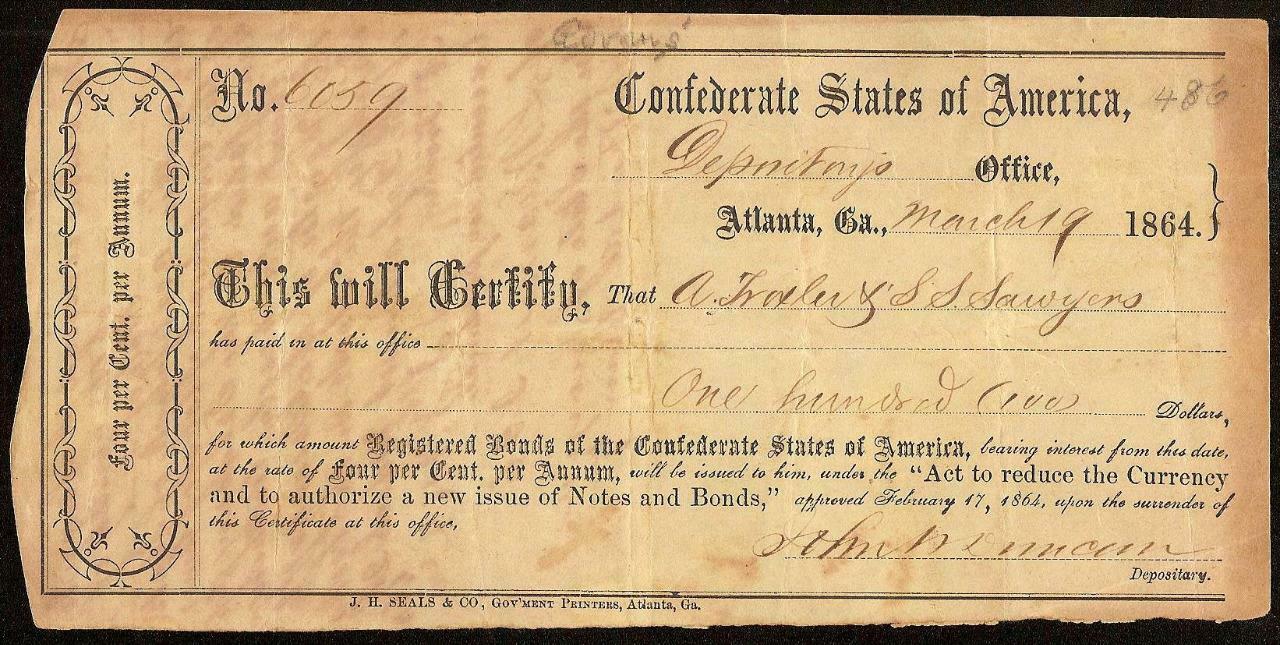 No. 6059
Confederate States of America, 486
Depositary's Office,
Atlanta, Ga., March 19 1864.
Four per Cent. per Annum.
This will Certify, That A. Trotter & S S. Sawyers
has paid in at this office
One hundred (100) Dollars,
for which amount Registered Bonds of the Confederate States of America, bearing interest from this date,
at the rate of Four per Cent. per Annum, will be issued to him, under the "Act to reduce the Currency
and to authorize a new issue of Notes and Bonds," approved February 17, 1864, upon the surrender of
this Certificate at this office,
John W Duncan
Depositary.
J. H. SEALS & CO., GOV'MENT PRINTERS, Atlanta, Ga.